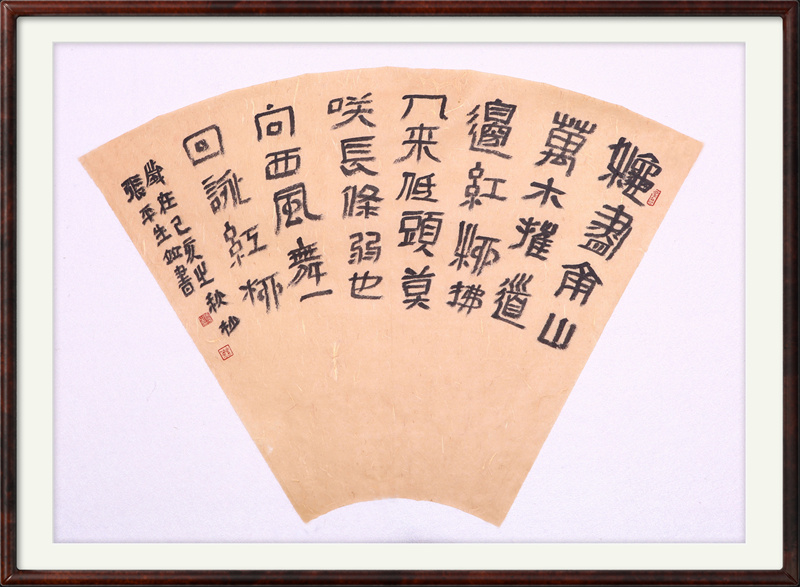 盡山
萬木摧道
邊紅柳拂
人來低頭莫
咲長條弱也
向西風舞一
回詠紅柳
歲在己亥之秋杪
張平生並書